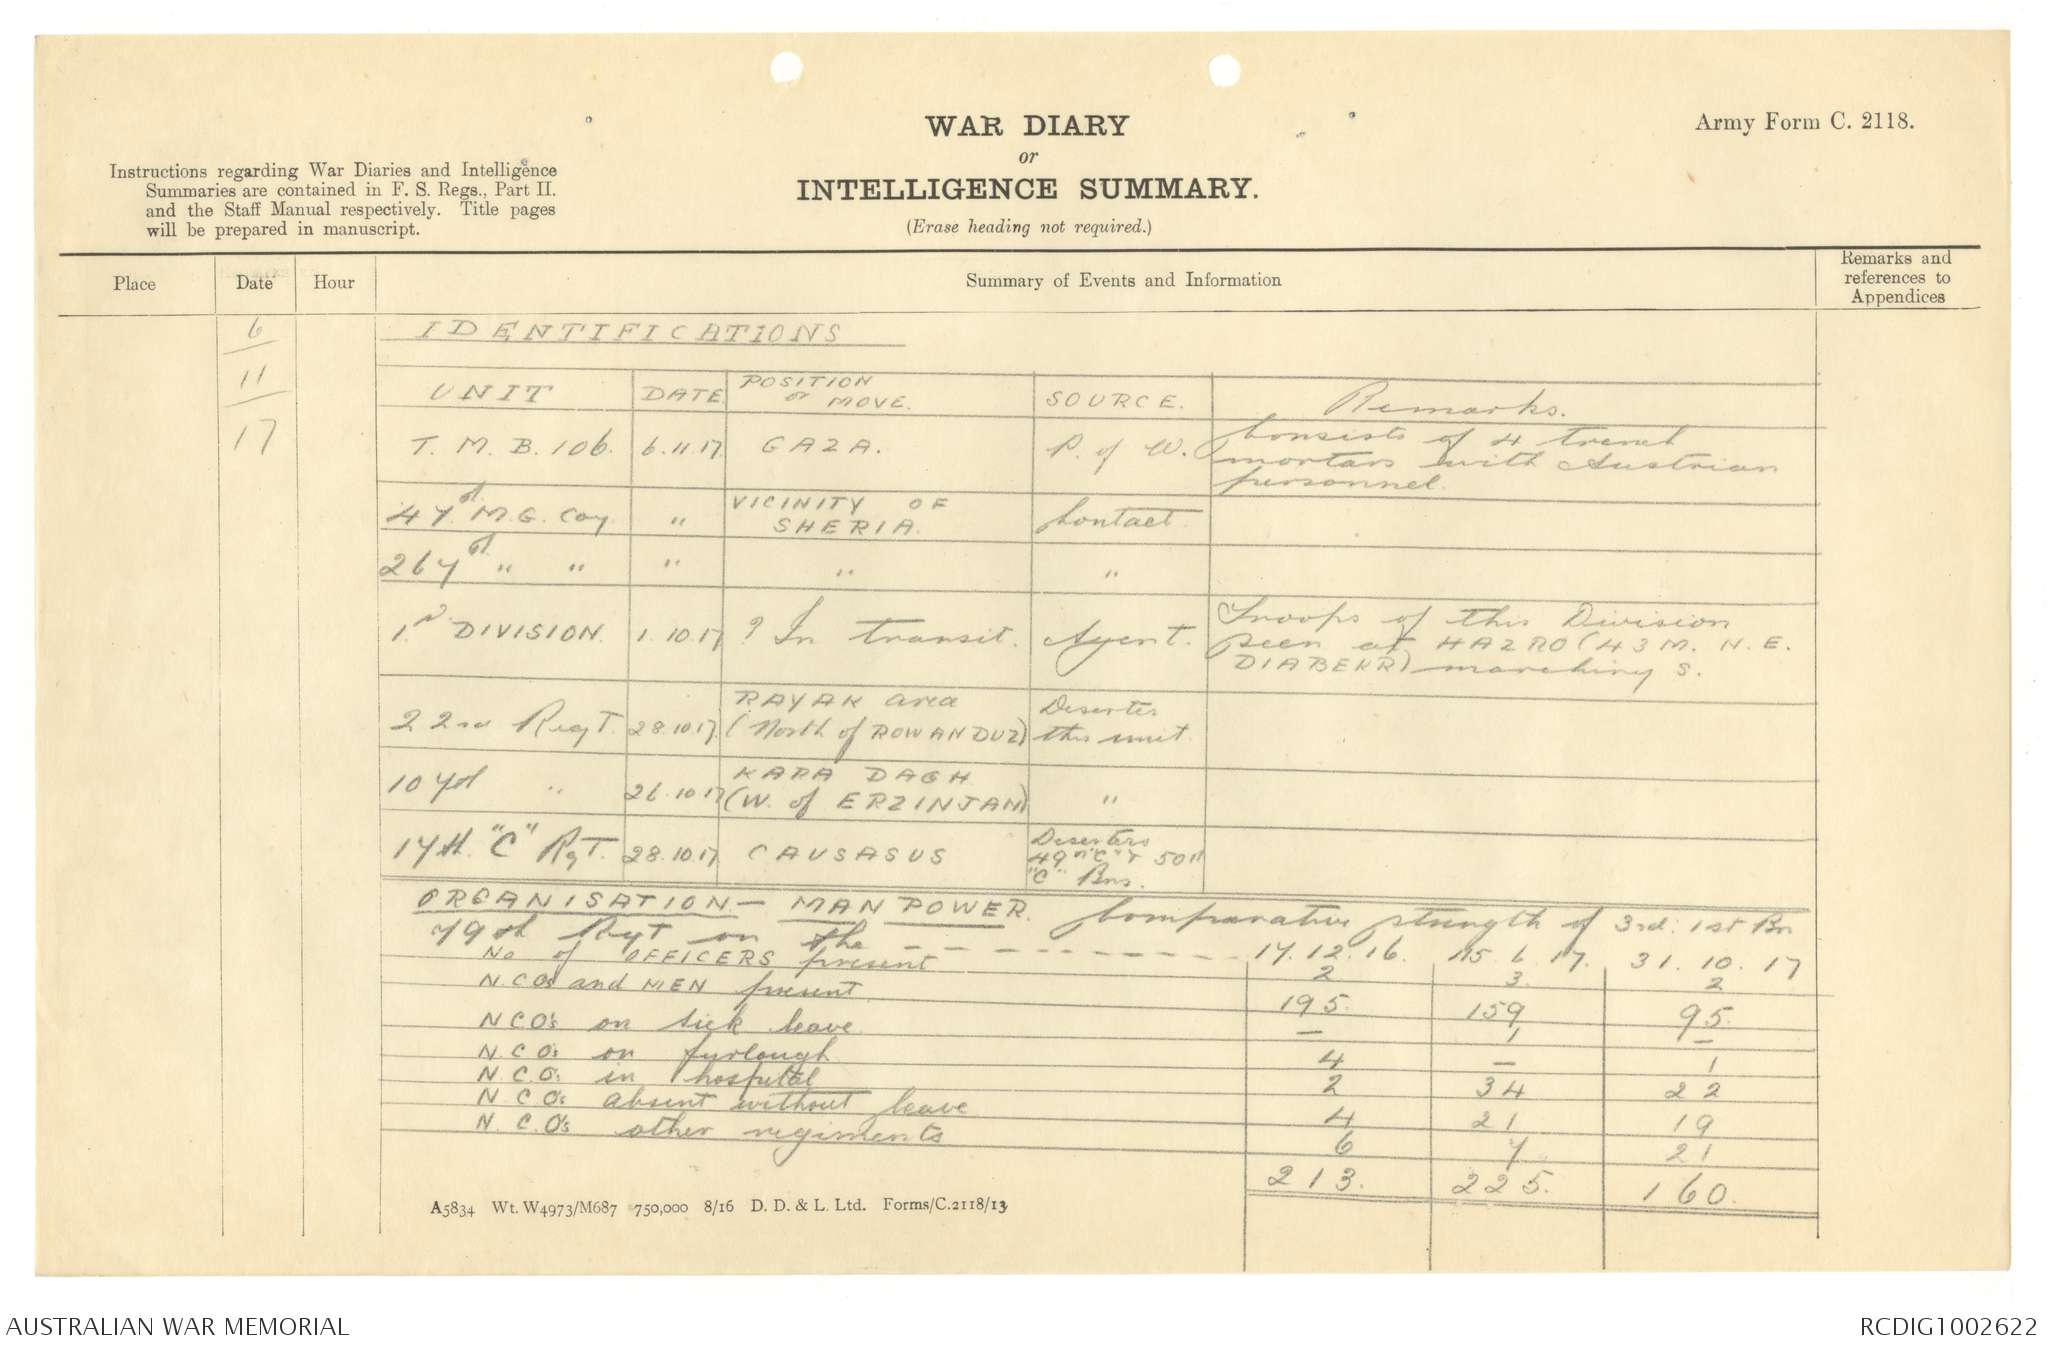 WAR DIARY
or
INTELLIGENCE SUMMARY.
(Erase heading not required.)
Army Form C. 2118.
Instructions regarding War Diaries and Intelligence
Summaries are contained in F. S. Regs., Part II.
and the Staff Manual respectively. Title pages
will be prepared in manuscript.
Place Date Hour Summary of Events and Information Remarks and references to Appendices
6
11
17
IDENTIFICATIONS
UNIT DATE POSITION or MOVE. SOURCE. Remarks.
T. M. B. 106. 6.11.17 GAZA. P. of W. Consists of 4 trench
mortars with Austrian
personnel.
47th M.G. Coy " VICINITY OF SHERIA. Contact
267th " " " " "
1st DIVISION. 1.10.17 ? In transit. Agent. Troops of this Division
seen at HAZRO (43 M. N.E.
DIABEKR) marching S.
22nd Regt. 28.10.17. RAYAK area Deserter
(North of ROWANDUZ) this unit.
107th " 26.10.17 KARA DAGH
(W. of ERZINJAN) "
17th "C" Rgt. 28.10.17 CAUSASUS Deserters
49th "C" & 50th
"C" Bns.
ORGANISATION - MAN POWER. Comparative strength of 3rd: 1st Bn
79th Rgt on the - - - - - - - - - 17. 12. 16. 15. 6. 17. 31. 10. 17
No of OFFICERS present 2 3. 2
NCOs and MEN present 195. 159 95.
NCO's on sick leave — 1 —
N.C.O's on furlough 4 — 1
N.C.O's in hospital 2 34 22
N.C.O's absent without leave 4 21 19
N.C.O's other regiments 6 7 21
213. 225. 160.
A5834 Wt. W4973/M687 750,000 8/16 D. D. & L. Ltd. Forms/C.2118/13
AUSTRALIAN WAR MEMORIAL
RCDIG1002622